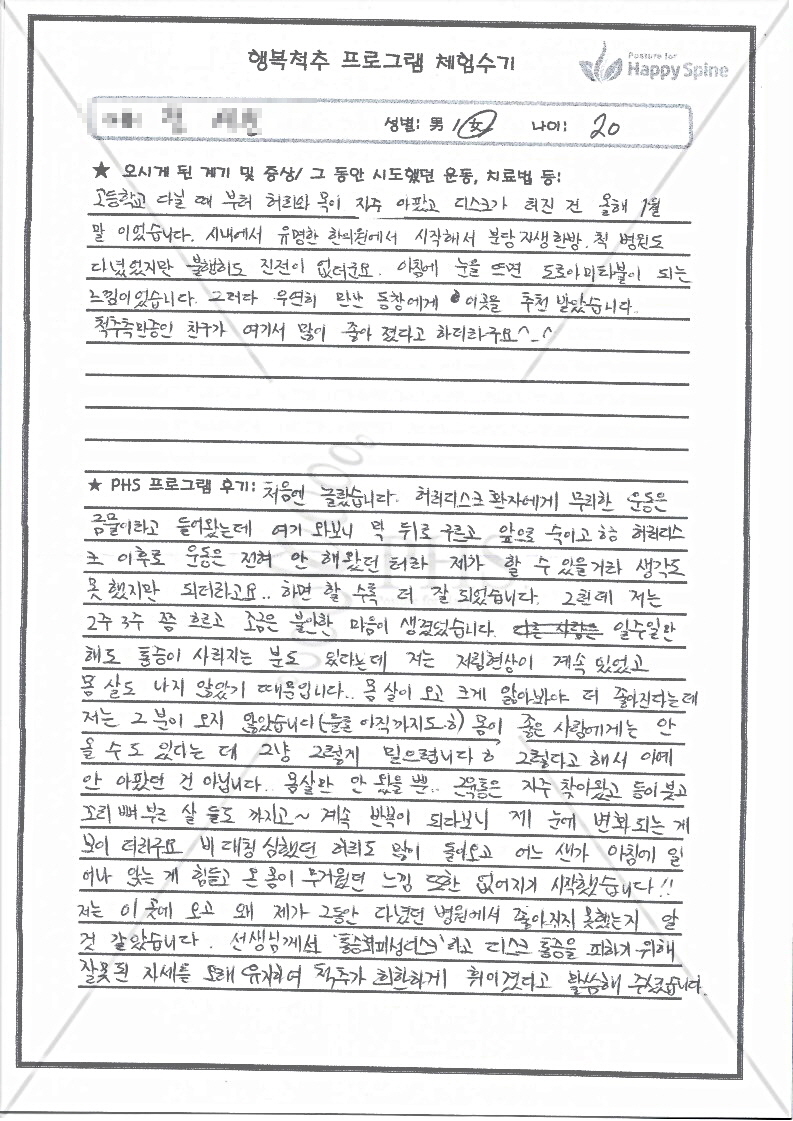 행복척추 프로그램 체험수기
Posture for
Happy Spine
성별: 男 / 女 나이: 20
★ 오시게 된 계기 및 증상/ 그 동안 시도했던 운동, 치료법 등:
고등학교 다닐 때 부터 허리와 목이 자주 아팠고 디스크가 터진 건 올해 1월
말 이었습니다. 시내에서 유명한 한의원에서 시작해서 분당 자생한방. 척 병원도
다녔었지만 불행히도 진전이 없더군요. 아침에 눈을 뜨면 도로아미타불이 되는
느낌이었습니다. 그러다 우연히 만난 동창에게 이곳을 추천 받았습니다.
척추측만증인 친구가 여기서 많이 좋아 졌다고 하더라구요^_^
★ PHS 프로그램 후기: 처음엔 놀랐습니다. 허리디스크 환자에게 무리한 운동은
금물이라고 들어왔는데 여기 와보니 막 뒤로 구르고 앞으로 숙이고 ㅎㅎ 허리디스
크 이후로 운동은 전혀 안 해왔던 터라 제가 할 수 있을거라 생각도
못 했지만 되더라고요.. 하면 할 수록 더 잘 되었습니다. 그런데 저는
2주 3주 쯤 흐르고 조금은 불안한 마음이 생겼었습니다. 다른 사람은 일주일만
해도 통증이 사라지는 분도 있다는데 저는 저림현상이 계속 있었고
몸 살도 나지 않았기 때문입니다.. 몸 살이 오고 크게 앓아봐야 더 좋아진다는데
저는 그 분이 오지 않았습니다(물론 아직까지도ㅎ) 몸이 좋은 사람에게는 안
올 수 도 있다는 데 그냥 그렇게 믿으렵니다ㅎ 그렇다고 해서 아예
안 아팠던 건 아닙니다.. 몸살만 안 왔을 뿐.. 근육통은 자주 찾아왔고 등이 붓고
꼬리 뼈 부근 살 들도 까지고~ 계속 반복이 되다보니 제 눈에 변화 되는 게
보이 더라구요 비 대칭 심했던 허리도 많이 돌아오고 어느 샌가 아침에 일
어나 앉는 게 힘들고 온 몸이 무거웠던 느낌 또한 없어지기 시작했습니다!!
저는 이 곳에 오고 왜 제가 그동안 다녔던 병원에서 좋아지지 못했는지 알
것 같았습니다. 선생님께선 '통증회피성디스크'라고 디스크 통증을 피하기 위해
잘못된 자세를 오래 유지하여 척추가 희한하게 휘어졌다고 말씀해 주셨습니다.